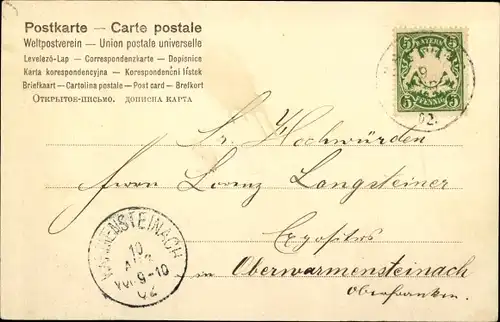 Postkarte — Carte postale
Weltpostverein — Union postale universelle
Levelező-Lap — Correspondenzkarte — Dopisnice
Karta korespondencyjna — Korespondenčni listek
Briefkaart — Cartolina postale — Post card — Brefkort
Открытое-письмо. дописна карта
BAYERN
5 5
5 PFENNIG 5
9
02.
Sr. Hochwürden
Herrn Lorenz Langsteiner
Expositus
in Oberwarmensteinach
Oberfranken.
WARMENSTEINACH
10
Vor. 9-10
02